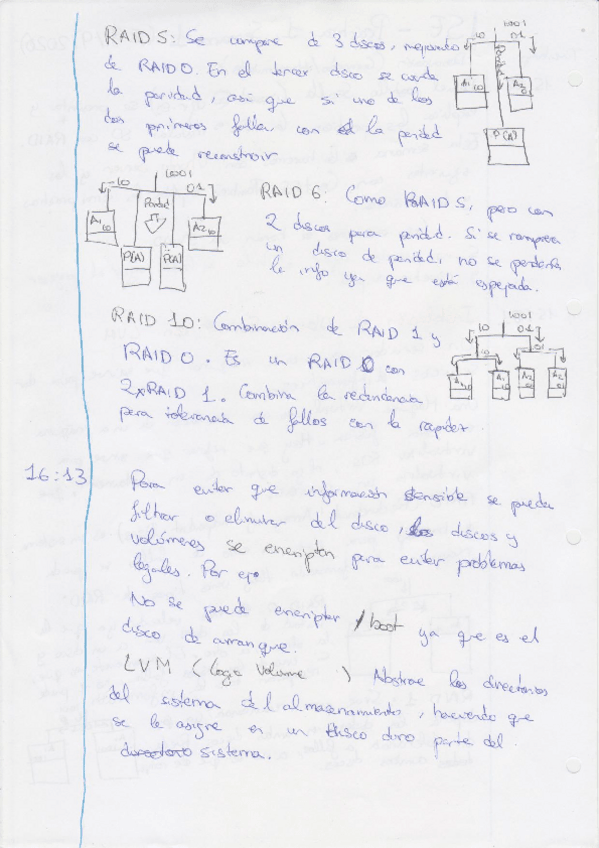 RAID 5: Se compone de 3 discos, mejorando
de RAID 0. En el tercer disco se guarda
la paridad, así que si uno de los
dos primeros falla, con la paridad
se puede reconstruir
1001
10
01
Paridad
A1 10
A2 01
P(A)
1001
10
01
Paridad
A1 10
A2 01
P(A)
P(A)
RAID 6: Como RAID 5, pero con
2 discos para paridad. Si se rompiera
un disco de paridad, no se perdería
la info ya que está espejada.
RAID 10: Combinación de RAID 1 y
RAID 0. Es un RAID 0 con
2xRAID 1. Combina la redundancia
para tolerancia de fallos con la rapidez.
1001
10
01
10
01
A1 10
A1 10
A2 01
A2 01
16:13
Para evitar que información sensible se pueda
filtrar o eliminar del disco, los discos y
volúmenes se encriptan para evitar problemas
legales. Por ejo
No se puede encriptar /boot ya que es el
disco de arranque.
LVM (Logo Volume ) Abstrae los directorios
del sistema del almacenamiento, haciendo que
se le asigne en un disco duro parte del
sistema.